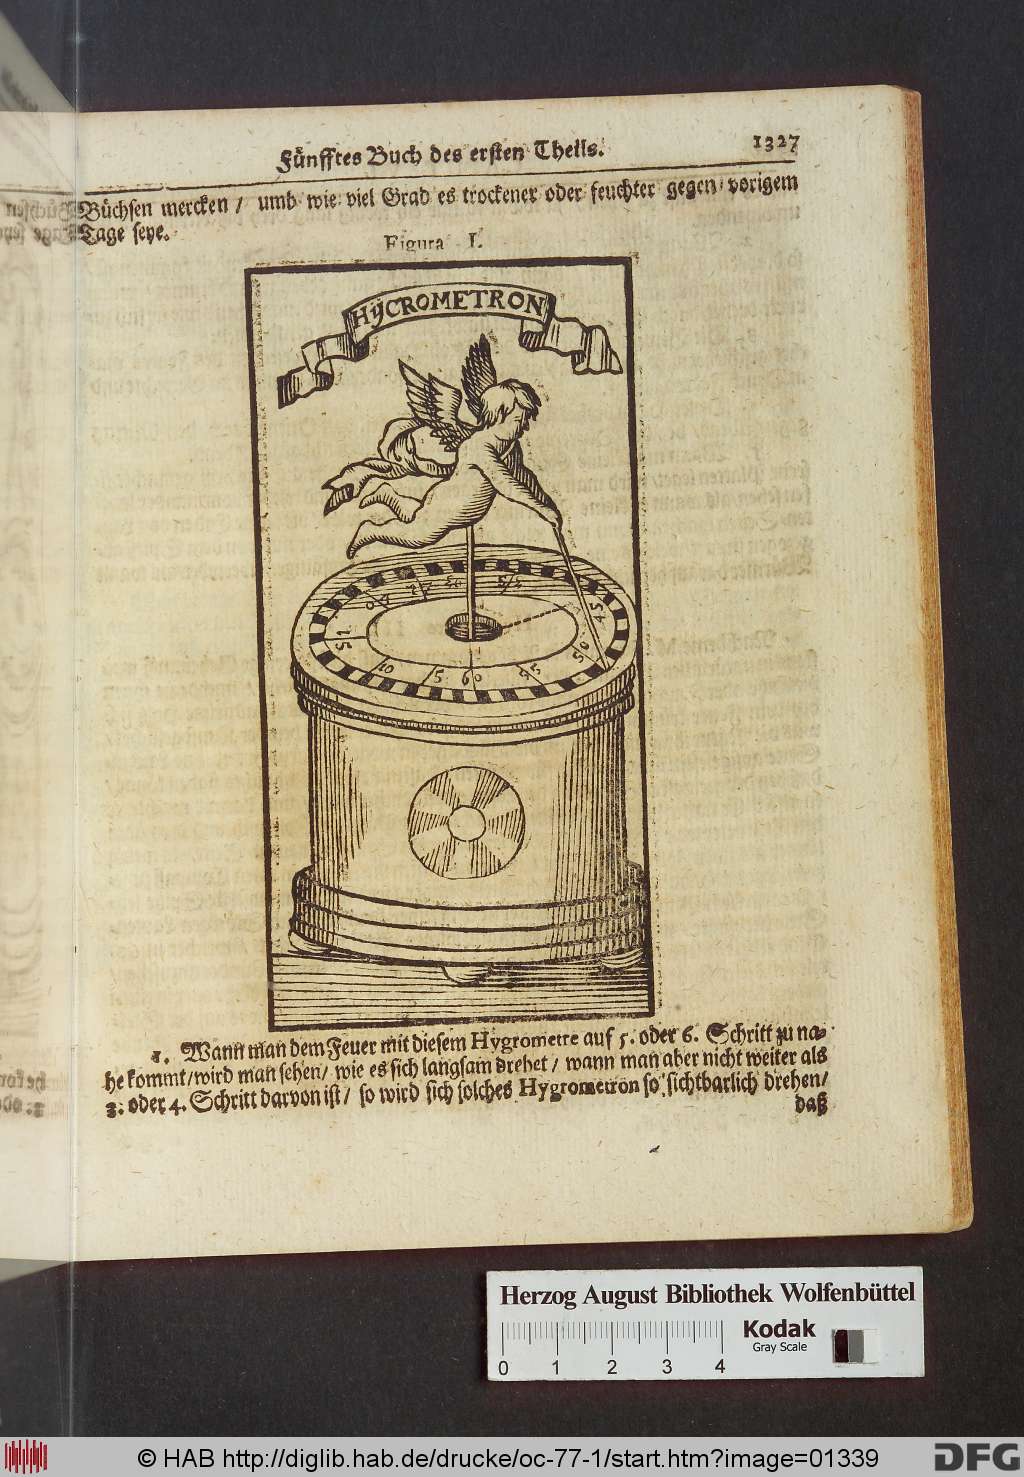 Fünfftes Buch des ersten Theils. 1327
Büchsen mercken / umb wie viel Grad es trockener oder feuchter gegen vorigem
Tage seye.
Figura I.
HŸCROMETRON
5 10 15 50 55 60 45 50 55
1. Wann man dem Feuer mit diesem Hygrometre auf 5. oder 6. Schritt zu na-
he kommt / wird man sehen / wie es sich langsam drehet / wann man aber nicht weiter als
3. oder 4. Schritt darvon ist / so wird sich solches Hygrometron so sichtbarlich drehen /
daß
Herzog August Bibliothek Wolfenbüttel
0 1 2 3 4
Kodak
Gray Scale
© HAB http://diglib.hab.de/drucke/oc-77-1/start.htm?image=01339
DFG